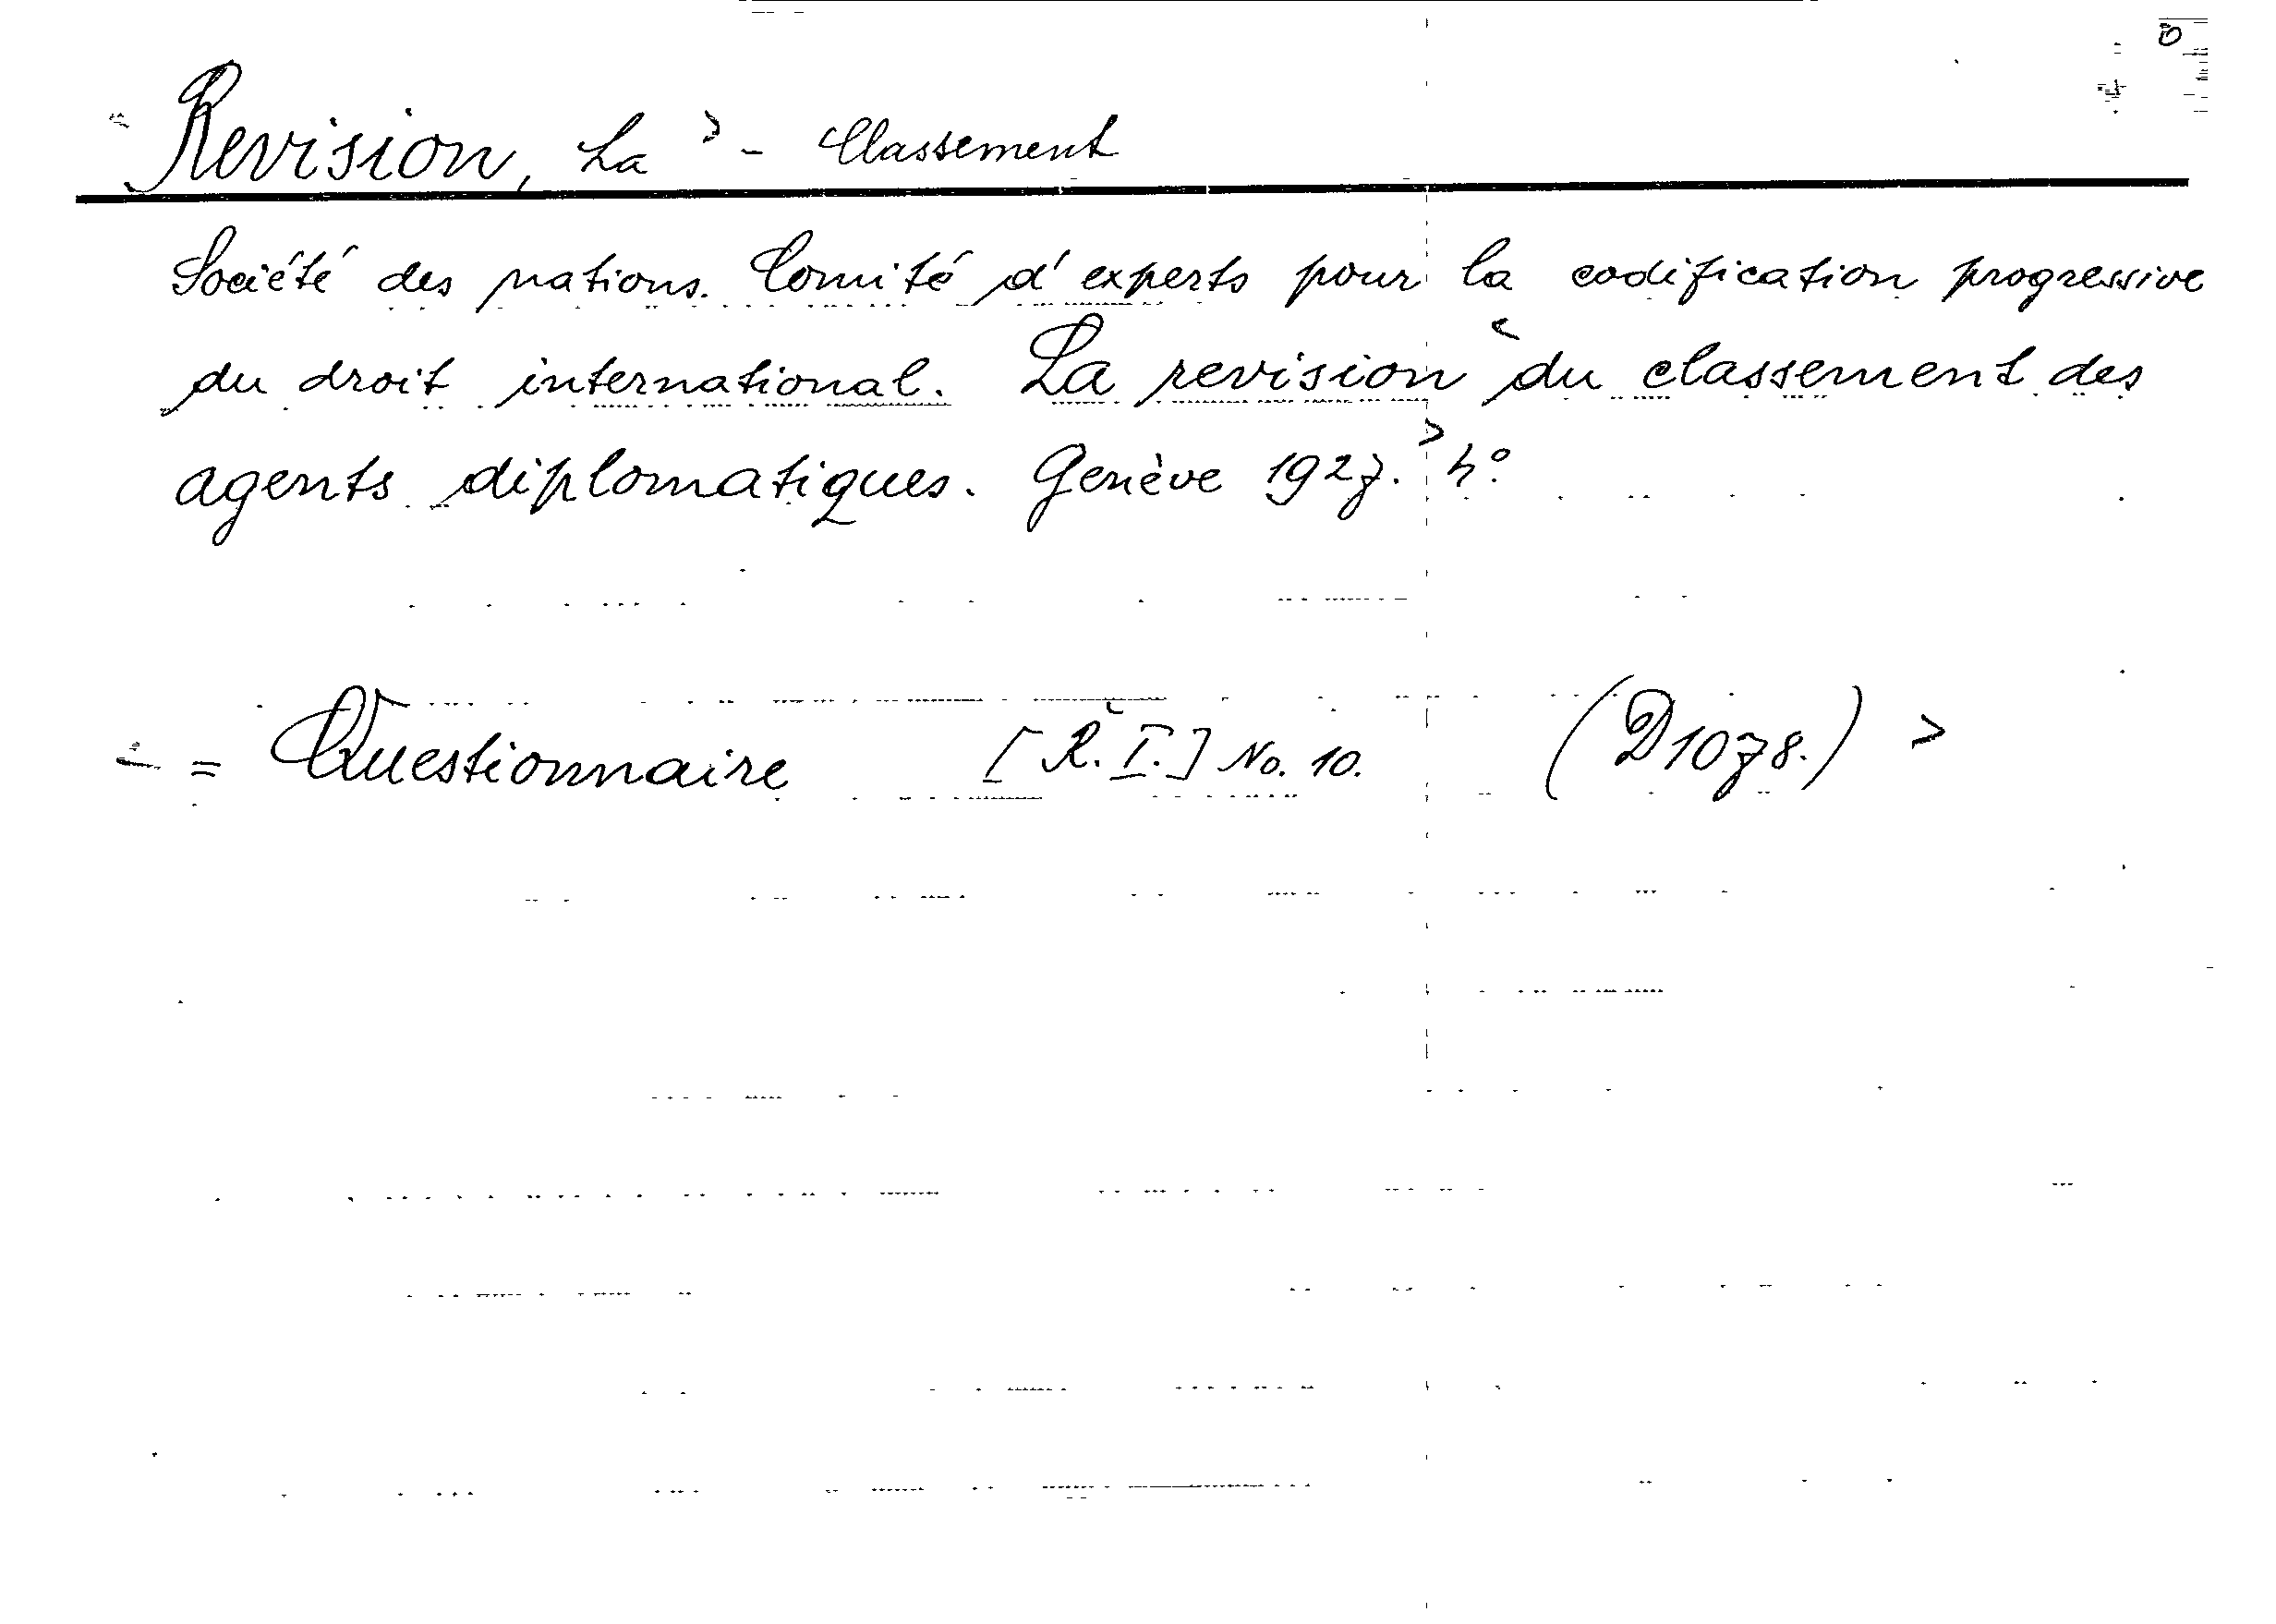 Revision, La - Classement
Société des nations. Comité d'experts pour la codification progressive
du droit international. La revision du classement des
agents diplomatiques. Genève 1927. 4°.
= Questionnaire [R.I.] No. 10. (D1078.)